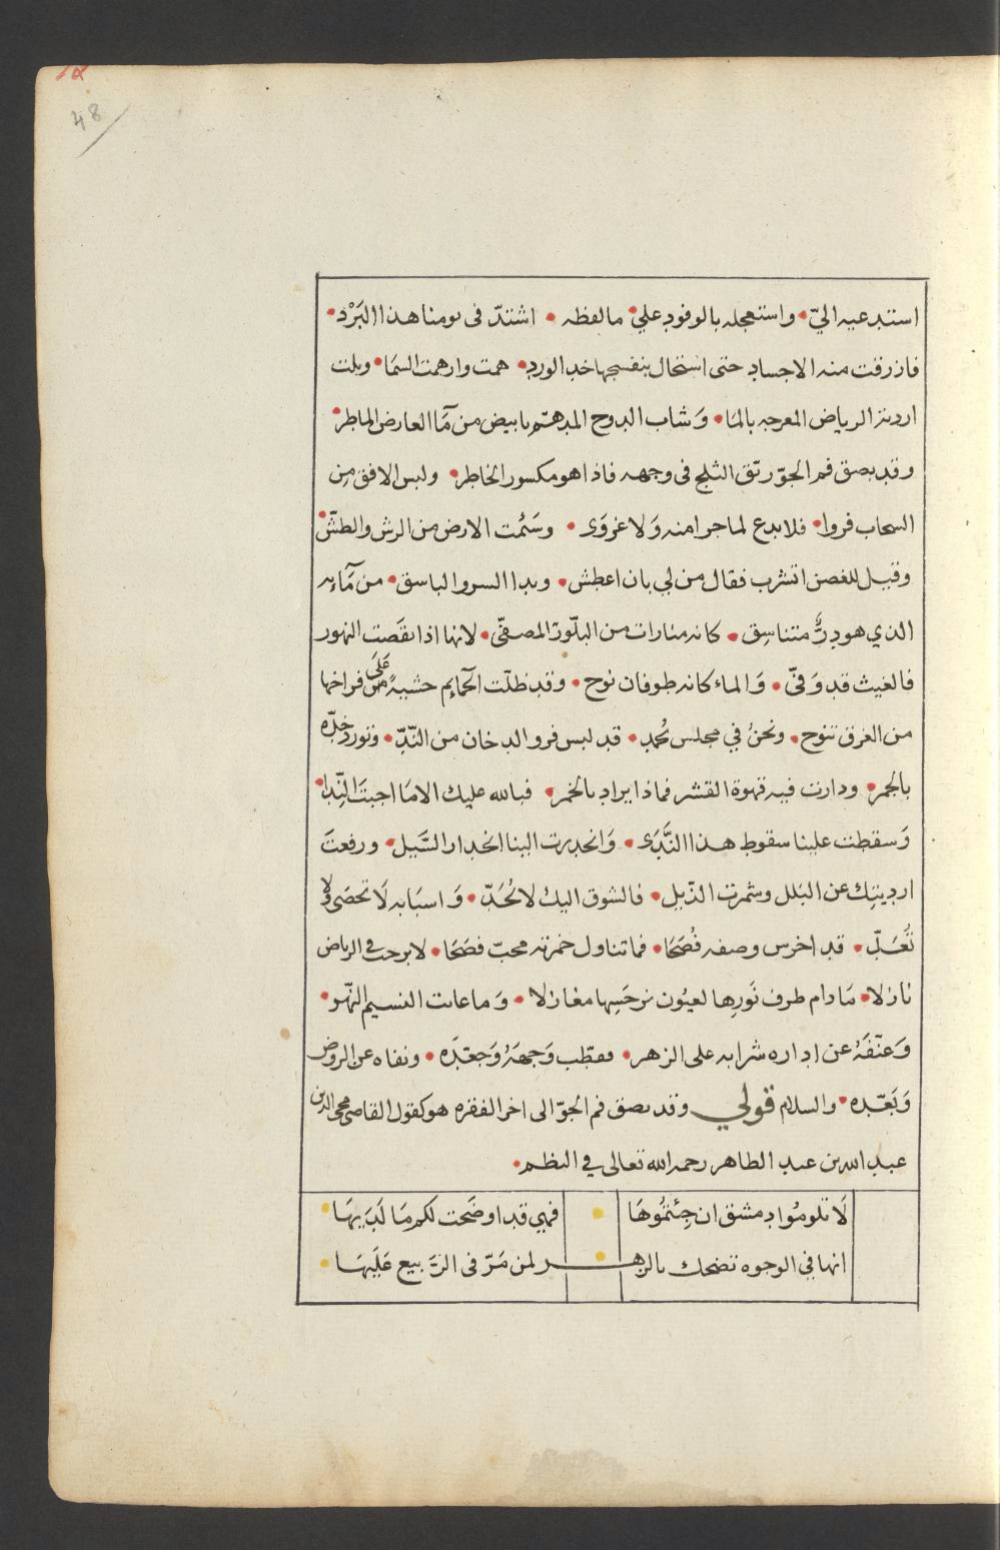 48
استدعيه اليّ • واستعجله بالوفود علي • ما لفظه • اشتدّ في يومنا هذا البَرْد •
فازرقت منه الاجساد حتى استحال بنفسجها خد الورد • همت وارهمت السمَا • وبلت
اردية الرياض المعرجه بالمَا • وَشاب الدوح المدهتم بابيض من مَّا العارض الماطر •
وقد بصق فم الجوّ ريّق الثلج في وجهه فاذا هو مكسور الخاطر • ولبس الافق مِن
السحاب فروا • فلا بدع لما جرا منه وَلا غروَى • وسَئمت الارض من الرش والطشّ •
وقيل للغصن اتشرب فقال من لي بان اعطش • وبدا السرو الباسق • من مَّآيه
الذي هو دِرٌّ متناسِق • كانه منارات من البلّور المصفّى • لانها اذا نقَصَت النهور
فالغيث قد وَفىّ • وَالماء كانه طوفان نوح • وقد ظلّت الحمايم خشيةً عَلَى فراخها
من الغرق تنوح • ونحنُ في مجلس نُحمد • قد لبس فرو الدخان من النّدّ • وتورد خدّه
بالجمر • ودارت فيه قهوة القشر فماذا يراد بالخمر • فبالله عليك الا مَا اجبتَ النِّدا •
وَسقطت علينا سقوط هذا النَّدَى • وَانحدرت الينا انحدار السَّيل • ورفعتَ
ارديتِك عن البَلل وشمرت الذّيل • فالشوق اليك لا يُحَدّ • وَاسبَابه لَا تحصَى وَلا
تُعَدّ • قد اخرس وصفه فُصَحَا • فما تناول خمرته محبّ فصَحَا • لا برحت في الرياض
نازلا • مَادام طرف نَورِها لعيُون نرجَسِها مغازلا • وَما عاتب النسيم النّهر •
وَعنّفَهُ عن اداره شرابه على الزهر • فقطّب وَجهَهُ وَجعّدَه • ونفاه عن الروض
وَبَعّده • والسلام قولي وقد بصق فم الجوّ الى اخر الفقره هو كقول القاضي محي الدين
عبد الله بن عبد الظاهر رحمه الله تعالى في النظم •
لَا تلومُوا دمشق ان جِئتمُوهَا • فهي قد اوضَحت لكم مَا لَدَيهَا •
انها في الوجوه تضحك بالزهـ • ـر لمن مَرّ في الرَّبيع عَلَيهَا •